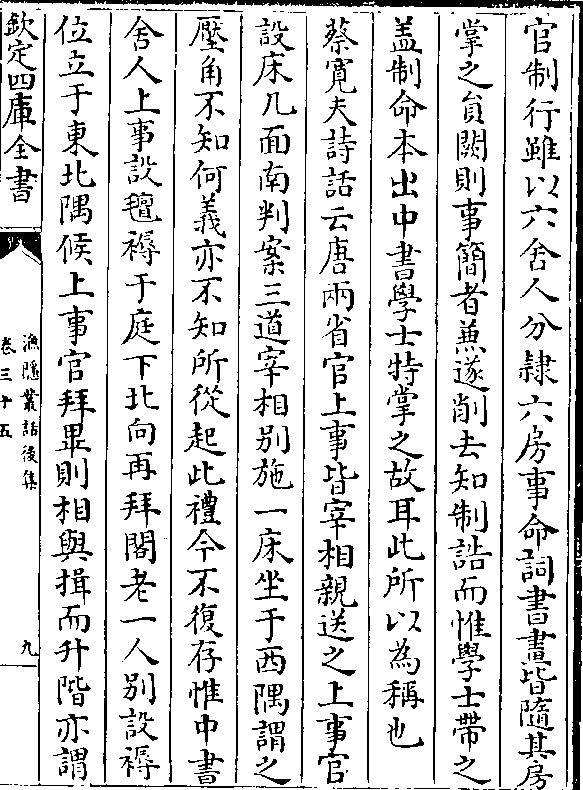 官制行雖以六舍人分隸六房事命詞書畫皆隨其房
掌之員闕則事簡者兼遂削去知制誥而惟學士帶之
盖制命本出中書學士特掌之故耳此所以為稱也
蔡寛夫詩話云唐兩省官上事皆宰相親送之上事官
設床几面南判案三道宰相别施一床坐于西隅謂之
壓角不知何義亦不知所從起此禮今不復存惟中書
舍人上事設氊褥于庭下北向再拜閣老一人别設褥
位立于東北隅候上事官拜畢則相與揖而升階亦謂
欽定四庫全書
漁隱叢話後集
卷三十五
九